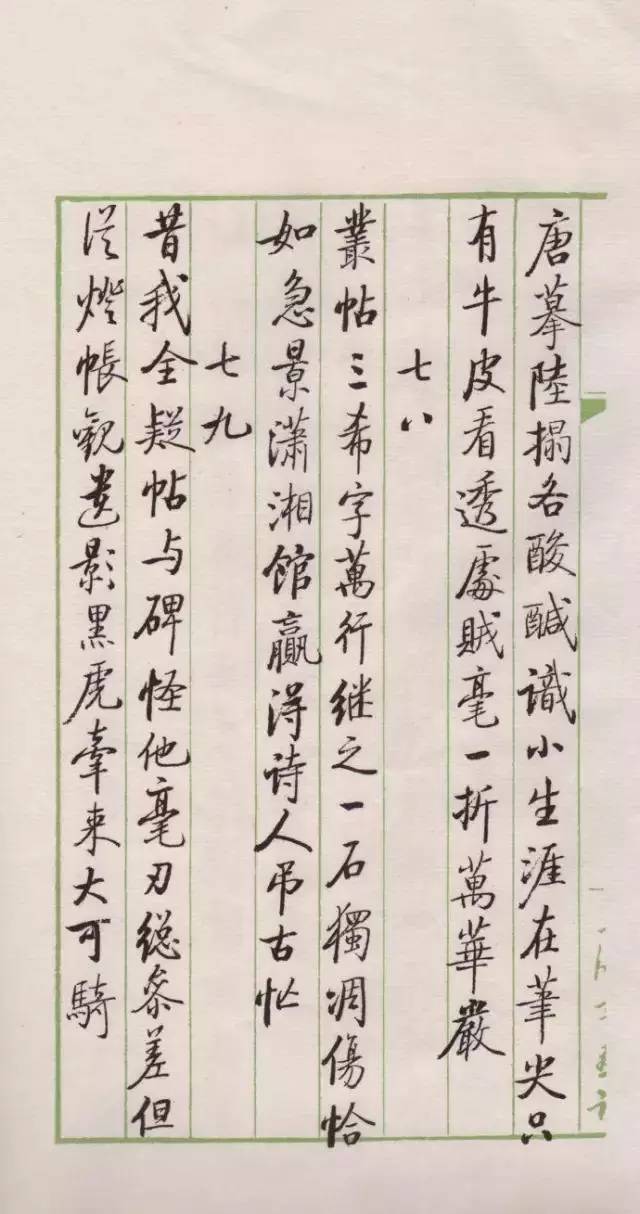 唐摹陸搨各酸醎識小生涯在筆尖只
有牛皮看透處賊毫一折萬華嚴
七八
叢帖三希字萬行继之一石獨凋傷恰
如急景瀟湘館贏淂诗人吊古忙
七九
昔我全疑帖与碑怪他毫刃総參差但
从燈帳觀遺影黑虎牽来大可騎